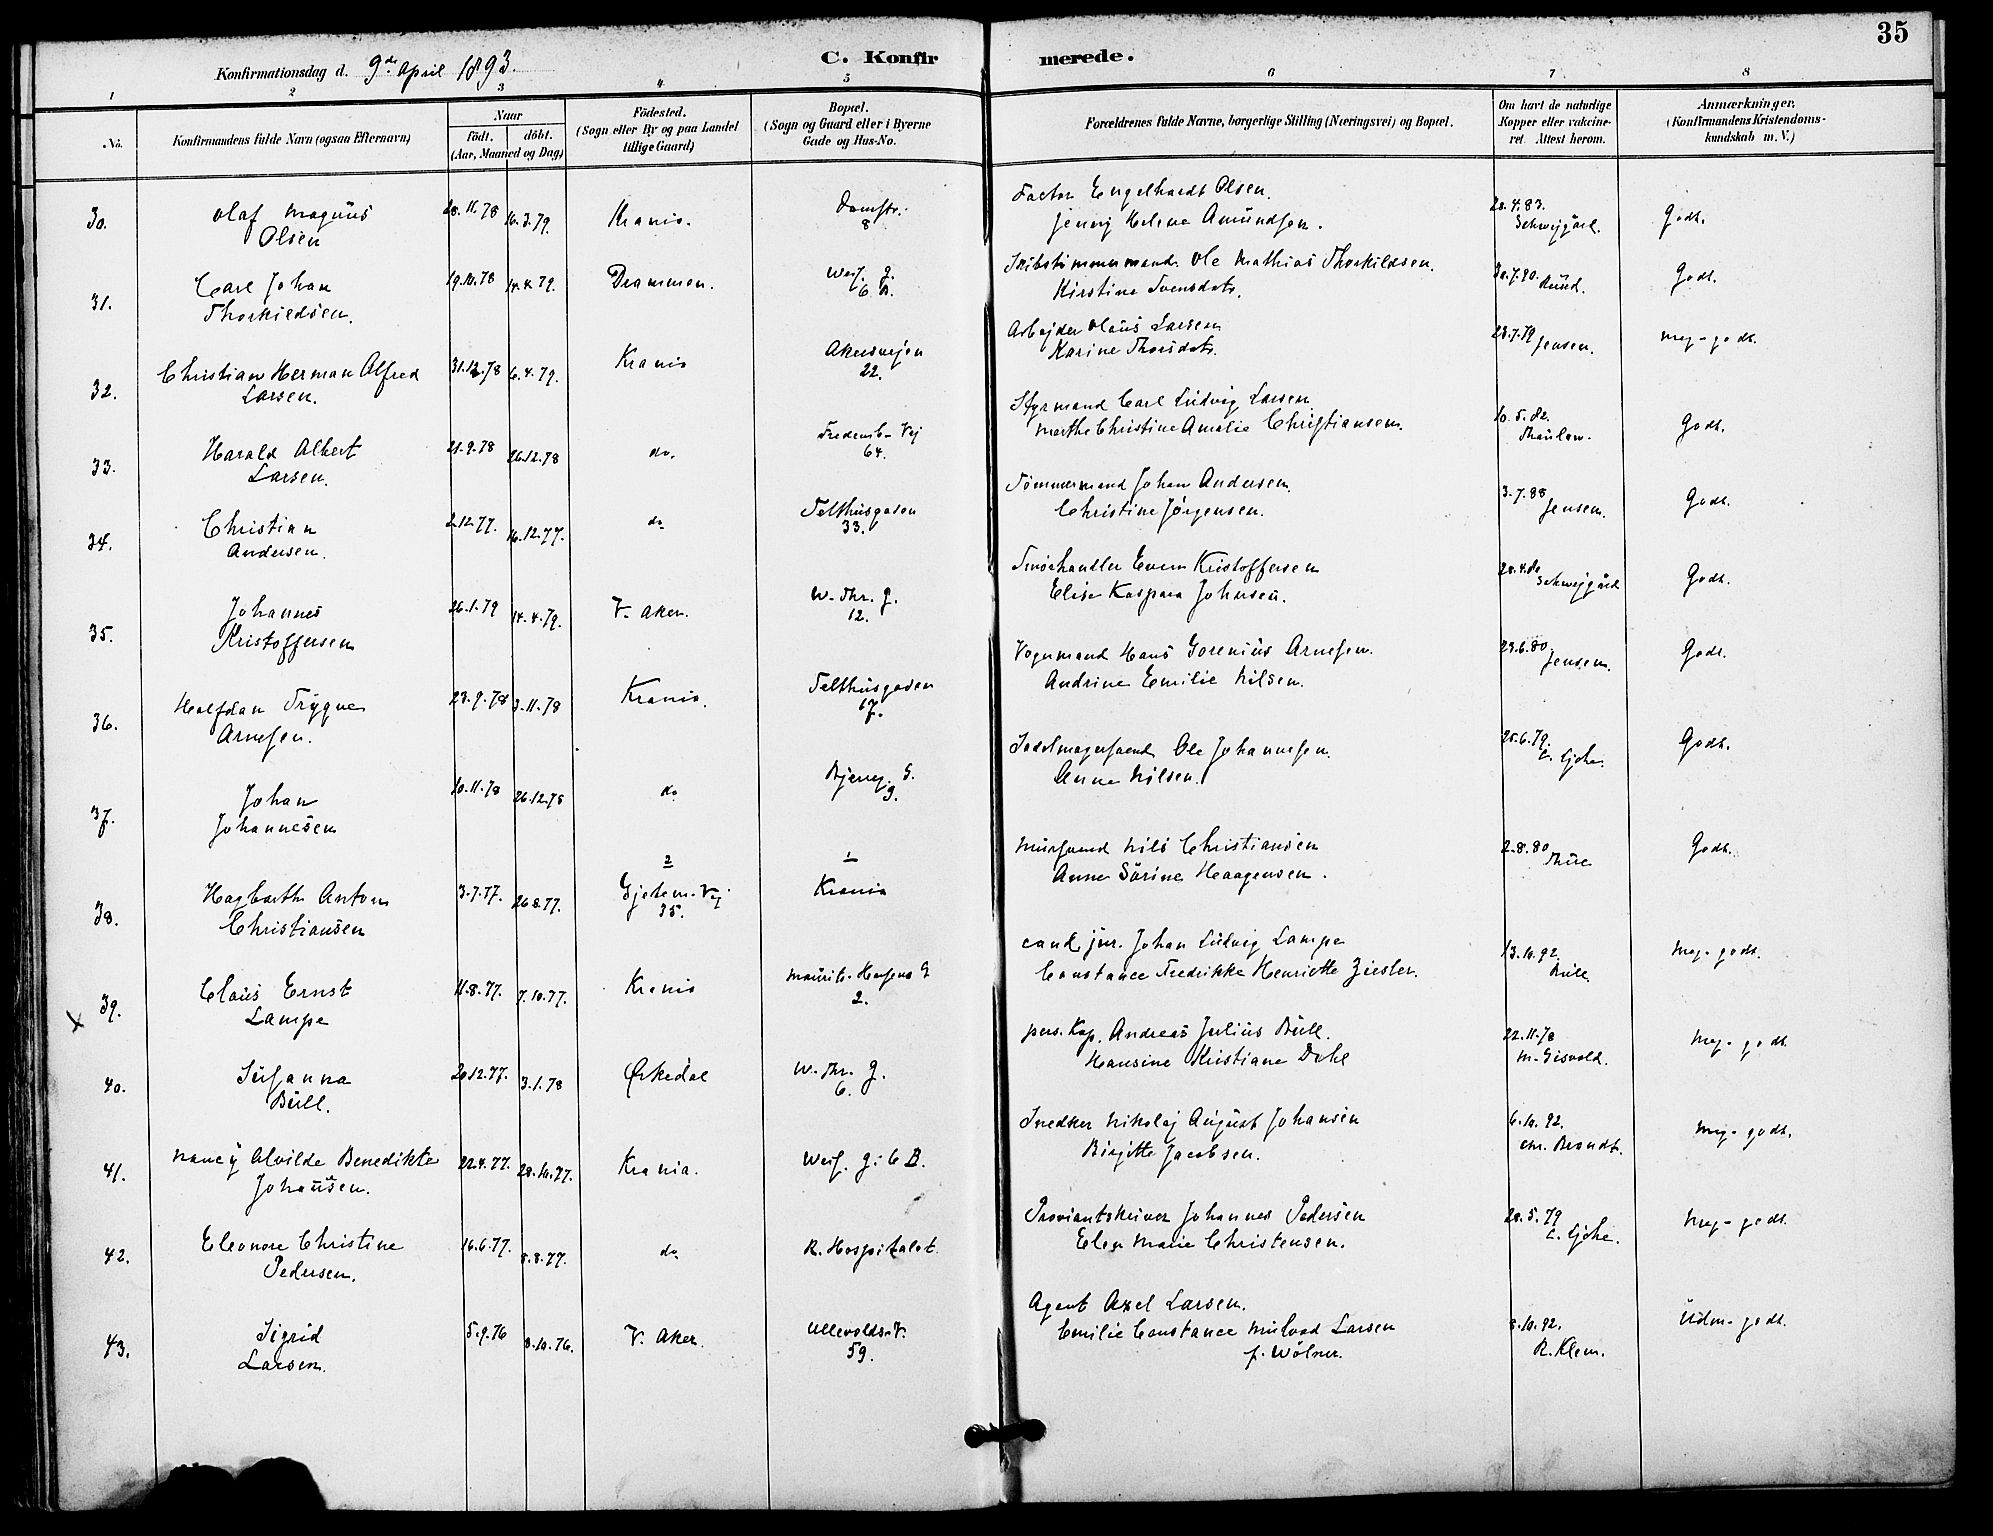 35
Konfirmationsdag d. 9de April 1893.
C. Konfirmerede.
1 2 3 4 5 6 7 8
No.
Konfirmandens fulde Navn (ogsaa Efternavn)
Naar
födt. döbt.
(Aar, Maaned og Dag)
Födested.
(Sogn eller By og paa Landet
tillige Gaard)
Bopæl.
(Sogn og Gaard eller i Byerne
Gade og Hus-No.
Forældrenes fulde Navne, borgerlige Stilling (Næringsvei) og Bopæl.
Om havt de naturlige
Kopper eller vakcine-
ret. Attest herom.
Anmærkninger.
(Konfirmandens Kristendoms-
kundskab m. V.)
30. Olaf Magnus
Olsen
28.11.78 16.3.79. Krania. Damstr.
8
Factor Engelhardt Olsen.
Jenny Helene Amundsen.
20.4.83.
Schweigård. Godt.
31. Carl Johan
Thorkildsen.
19.10.78 14.4.79. Drammen. Wesf. g.
6 B.
Skibstømmermand Ole Mathias Thorkildsen.
Kirstine Svensdatr.
30.7.80. Ruud. Godt.
32. Christian Herman Alfred
Larsen.
31.12.78 6.4.79. Krania Akersvejen
22.
Arbejder Olaus Larsen
Karine Thorsdatr.
23.7.79 Jensen. meg-godt.
33. Harald Albert
Larsen.
21.9.78 26.12.78 do. Fredensb-Vej
64.
Styrmand Carl Ludvig Larsen
Marthe Christine Amalie Christiansen.
10.5.82.
Thaulow. Godt.
34. Christian
Andersen.
2.12.77. 16.12.77. do Telthusgaden
33.
Tømmermand Johan Andersen.
Christine Jørgensen.
3.7.88
Jensen. Godt.
35. Johannes
Kristoffersen
26.1.79 14.4.79. V. Aker. W. Thr. g.
12.
Smørhandler Even Kristoffersen
Elise Kaspara Johnsen.
20.4.80
Schweigård Godt.
36. Halfdan Trygve
Arnesen.
23.9.78 3.11.78 Krania. Telthusgaden
17.
Vognmand Hans Gorenius Arnesen.
Andrine Emilie Nilsen.
23.6.80.
Jensen. Godt.
37. Johan
Johannesen
10.11.78 26.12.78 do Bjerreg. G.
9.
Sadelmagersvend Ole Johannesen.
Anna Nilsen.
25.6.79.
E. Gjohr. Godt.
38. Hagbarth Anton
Christiansen
3.7.77. 26.8.77. 2
Gjetem. Vej
35.
1
Krania
Mursvend Nils Christiansen
Anna Sørine Haagensen.
2.8.80
Thure Godt.
x 39. Claus Ernst
Lampe
11.8.77. 7.10.77. Krania Maurits Hansens G
2.
cand. jur. Johan Ludvig Lampe
Constance Fredrikke Henriette Ziesler.
13.10.92.
Bull. Meg-godt.
40. Susanna
Bull.
20.12.77. 3.1.78 Ørkedal W. Thr. g.
6.
pers. Kap. Andreas Julius Bull.
Hansine Kristiane Dahl
22.11.78
M. Gisvold. Meg-godt.
41. Nancy Alvilde Benedikte
Johansen.
22.4.77. 28.10.77. Krania. Wesf. g. 6 B.
Snedker Nikolaj August Johansen
Birgitte Jacobsen.
6.10.92.
Chr. Brandt. Meg-godt.
42. Eleonore Christine
Pedersen.
16.6.77. 8.8.77. do R. Hospitalet.
Proviantskriver Johannes Pedersen
Elen Marie Christensen.
20.5.79
E. Gjohr. Meg-godt.
43. Sigrid
Larsen.
5.9.76 8.10.76. V. Aker. Ullevolds-V.
59.
Agent Axel Larsen.
Emilie Constance Mulvad Larsen
f. Wølner.
8.10.92.
R. Klem. Udm-godt.